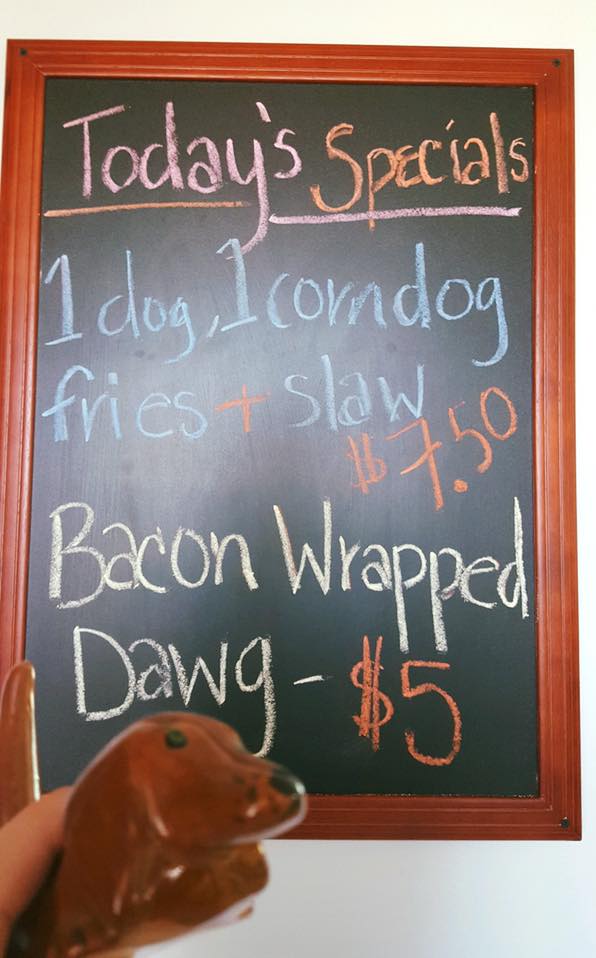 Today's Specials
1 dog, 1 corndog
fries + slaw
$7.50
Bacon Wrapped
Dawg - $5